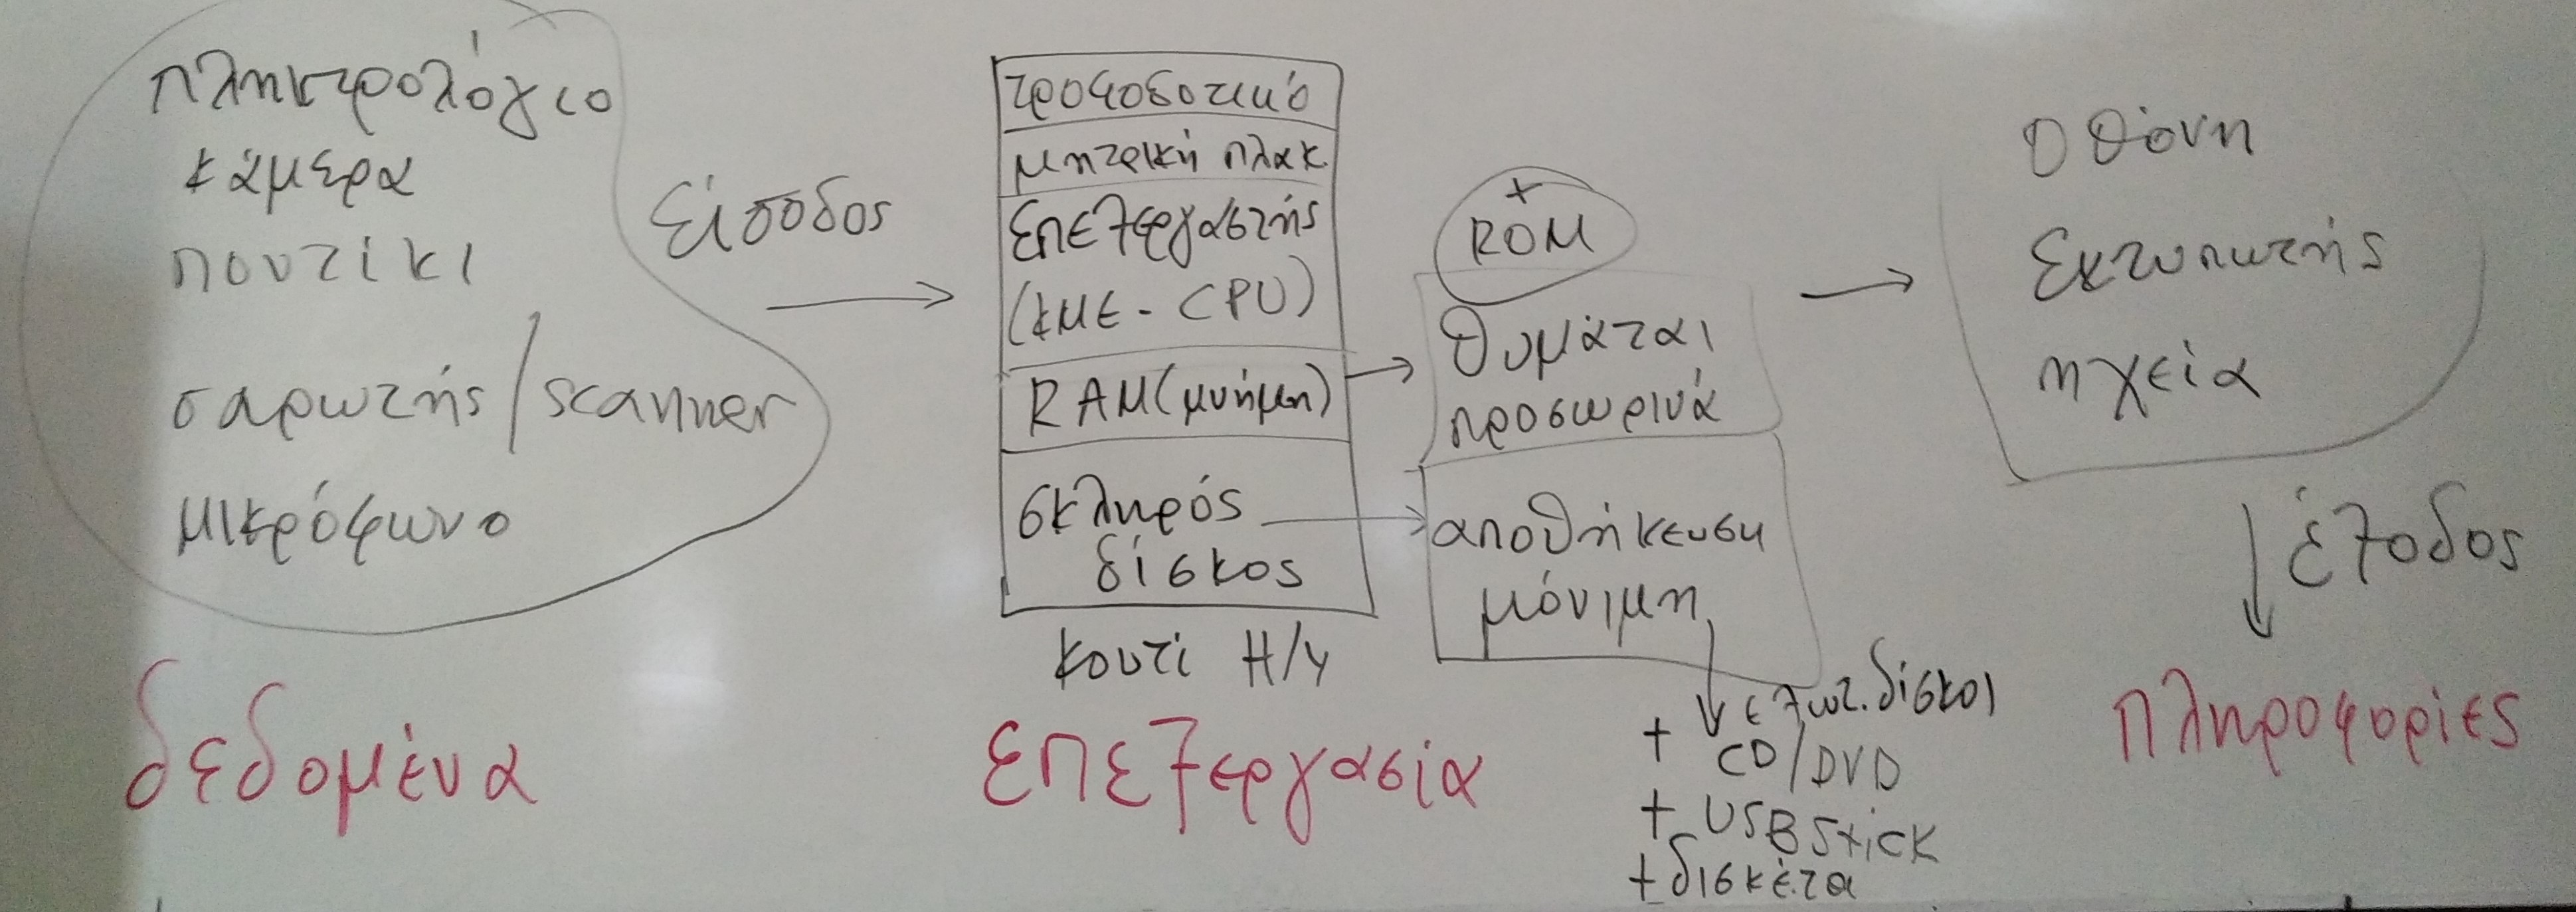 πληκτρολόγιο
κάμερα
ποντίκι
σαρωτής/scanner
μικρόφωνο
δεδομένα
είσοδος
τροφοδοτικό
μητρική πλακ.
επεξεργαστής
(ΚΜΕ - CPU)
RAM (μνήμη)
σκληρός
δίσκος
κουτί Η/Υ
επεξεργασία
+
ROM
θυμάται
προσωρινά
αποθήκευση
μόνιμη
+ εξωτ. δίσκοι
CD/DVD
+ USB Stick
+ δισκέτα
οθόνη
εκτυπωτής
ηχεία
έξοδος
πληροφορίες